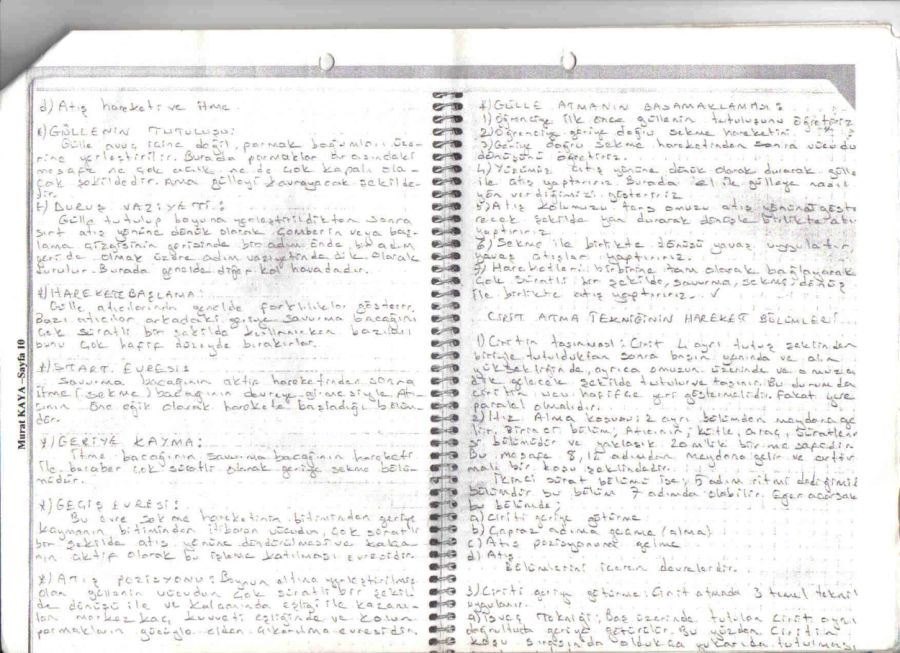 d) Atış hareketi ve itme.
*) GÜLLENİN TUTULUŞU:
Gülle avuç içine değil, parmak boğumları üze-
rine yerleştirilir. Burada parmaklar arasındaki
mesafe ne çok açık, ne de çok kapalı ola-
cak şekildedir. Ama gülleyi kavrayacak şekilde-
dir.
*) DURUŞ VAZİYETİ:
Gülle tutulup boyuna yerleştirildikten sonra
sırt atış yönüne dönük olarak çemberin veya baş-
lama çizgisinin gerisinde bir adım önde, bir adım
geride olmak üzere adım vaziyetinde dik olarak
durulur. Burada genelde diğer kol havadadır.
*) HAREKETE BAŞLAMA:
Gülle atıcılarının genelde farklılıklar gösterir.
Bazı atıcılar arkadaki geriye savurma bacağını
çok süratli bir şekilde kullanırken bazıları
bunu çok hafif düzeyde bırakırlar.
*) START EVRESİ:
Savurma bacağının aktif hareketinden sonra
itme (sekme) bacağının devreye girmesiyle At-
ıcının öne eğik olarak harekete başladığı bölüm-
dür.
*) GERİYE KAYMA:
İtme bacağının savurma bacağının hareketi
ile beraber çok süratli olarak geriye sekme bölü-
müdür.
*) GEÇİŞ EVRESİ:
Bu evre sekme hareketinin bitiminden geriye
kaymanın bitiminden itibaren vücudun, çok süratli
bir şekilde atış yönüne döndürülmesi ve kalça-
nın aktif olarak bu işleve katılması evresidir.
*) ATIŞ POZİSYONU: Boynun altına yerleştirilmiş
olan güllenin vücudun çok süratli bir şekil-
de dönüşü ile ve kalçanında eşliği ile kazanı-
lan merkezkaç kuvveti eşliğinde ve kolun
parmakların gücüyle elden çıkarılma evresidir.
Murat KAYA –Sayfa 10
*) GÜLLE ATMANIN BASAMAKLANMASI:
1) Öğrenciye ilk önce güllenin tutuluşunu öğretiriz
2) Öğrenciye geriye doğru sekme hareketini.
3) Geriye doğru sekme hareketinden sonra vücudu
dönüşünü öğretiriz.
4) Yüzümüz atış yönüne dönük olarak durarak gülle
ile atış yaptırırız. Burada el ile gülleye nasıl
yön verdiğimizi gösteririz
5) Atış kolumuzu ters omuzu atış yönünü göste
recek şekilde yan durarak dönüşle birlikte atış
yaptırırız.
6) Sekme ile birlikte dönüşü yavaş uygulatır,
yavaş atışlar yaptırırız.
7) Hareketleri birbirine tam olarak bağlayarak
çok süratli bir şekilde, savurma, sekme, dönüş
ile birlikte atış yaptırırız.
CİRİT ATMA TEKNİĞİNİN HAREKET BÖLÜMLERİ...
1) Ciritin taşınması: Cirit 4 ayrı tutuş şeklinden
biriyle tutulduktan sonra başın yanında ve alın
yüksekliğinde, ayrıca omuzun üzerinde ve omuza
dik gelecek şekilde tutulur ve taşınır. Bu durumda
ciritin ucu hafifçe yeri göstermelidir. Fakat yere
paralel olmalıdır.
2) Hız Alma koşusu: 2 ayrı bölümden meydana ge
lir. Birinci bölüm, Atıcının; kütle, araç, süratlenme
si bölümüdür ve yaklaşık 20 mlik bir mesafedir.
Bu mesafe 8, 12 adımdan meydana gelir ve artır
malı bir koşu şeklindedir.
İkinci sürat bölümü ise; 5 adım ritmi dediğimiz
bölümdür bu bölüm 7 adımda olabilir. Eğer açarsak
bu bölümde;
a) Ciriti geriye götürme
b) Çapraz adıma geçme (alma)
c) Atış pozisyonuna gelme
d) Atış
Bölümlerini içeren devrelerdir.
3) Ciriti geriye götürme: Cirit atmada 3 temel teknik
uygulanır.
a) İsveç Tekniği: Baş üzerinde tutulan cirit aynı
doğrultuda geriye götürülür. Bu yüzden ciritin
koşu sırasında oldukça yukarıda tutulması